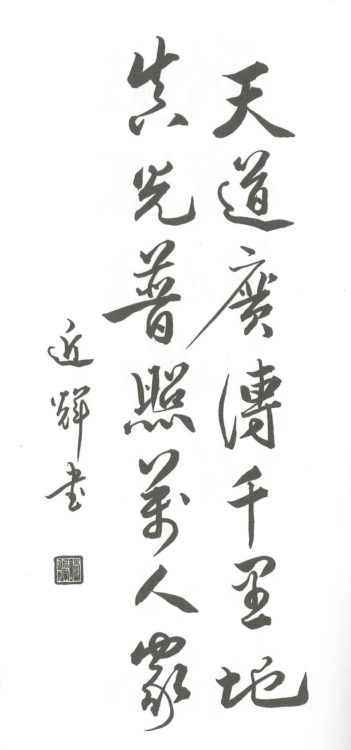 天道廣傳千里地
真光普照萬人家
近輝書